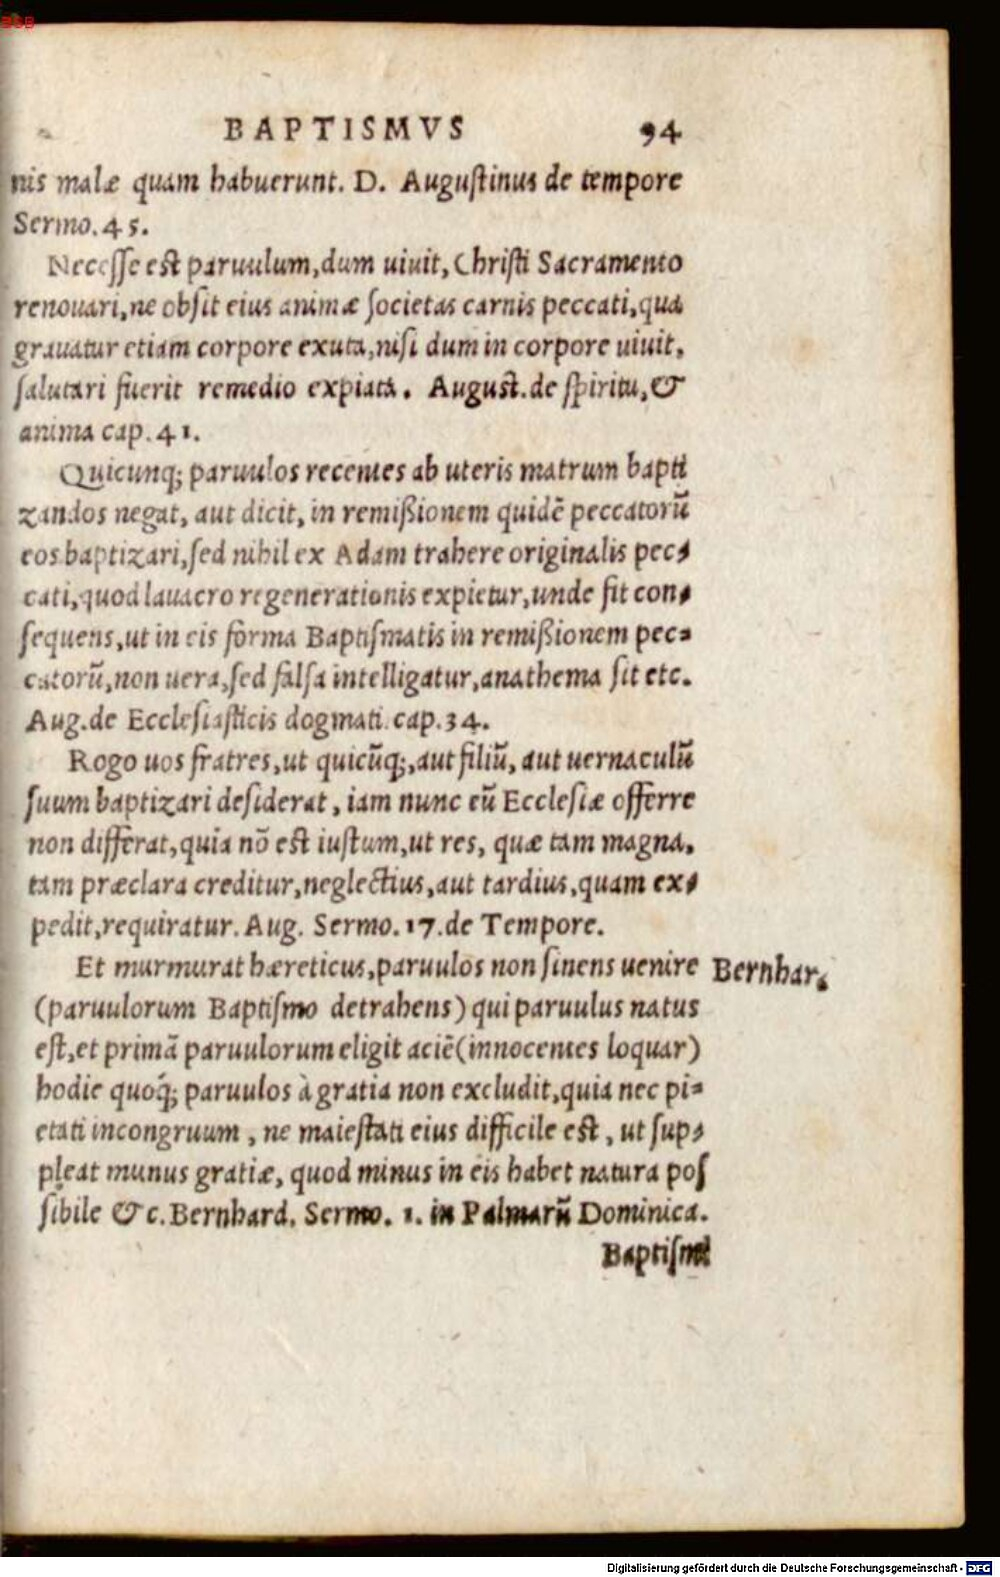 BSB
BAPTISMVS 94
nis malæ quam habuerunt. D. Augustinus de tempore
Sermo. 45.
Necesse est paruulum, dum uiuit, Christi Sacramento
renouari, ne obsit eius animæ societas carnis peccati, qua
grauatur etiam corpore exuta, nisi dum in corpore uiuit,
salutari fuerit remedio expiata. August. de spiritu, &
anima cap. 41.
Quicunq; paruulos recentes ab uteris matrum bapti
zandos negat, aut dicit, in remißionem quidē peccatorū
eos baptizari, sed nihil ex Adam trahere originalis pec-
cati, quod lauacro regenerationis expietur, unde fit con-
sequens, ut in eis forma Baptismatis in remißionem pec-
catorū, non uera, sed falsa intelligatur, anathema sit etc.
Aug. de Ecclesiasticis dogmati. cap. 34.
Rogo uos fratres, ut quicūq;, aut filiū, aut uernaculū
suum baptizari desiderat, iam nunc eū Ecclesiæ offerre
non differat, quia nō est iustum, ut res, quæ tam magna,
tam præclara creditur, neglectius, aut tardius, quam ex-
pedit, requiratur. Aug. Sermo. 17. de Tempore.
Et murmurat hæreticus, paruulos non sinens uenire Bernhar.
(paruulorum Baptismo detrahens) qui paruulus natus
est, et primā paruulorum eligit aciē (innocentes loquar)
hodie quoq́; paruulos à gratia non excludit, quia nec pi-
etati incongruum, ne maiestati eius difficile est, ut sup-
pleat munus gratiæ, quod minus in eis habet natura pos
sibile &c. Bernhard. Sermo. 1. in Palmarū Dominica.
Baptismi
Digitalisierung gefördert durch die Deutsche Forschungsgemeinschaft - DFG